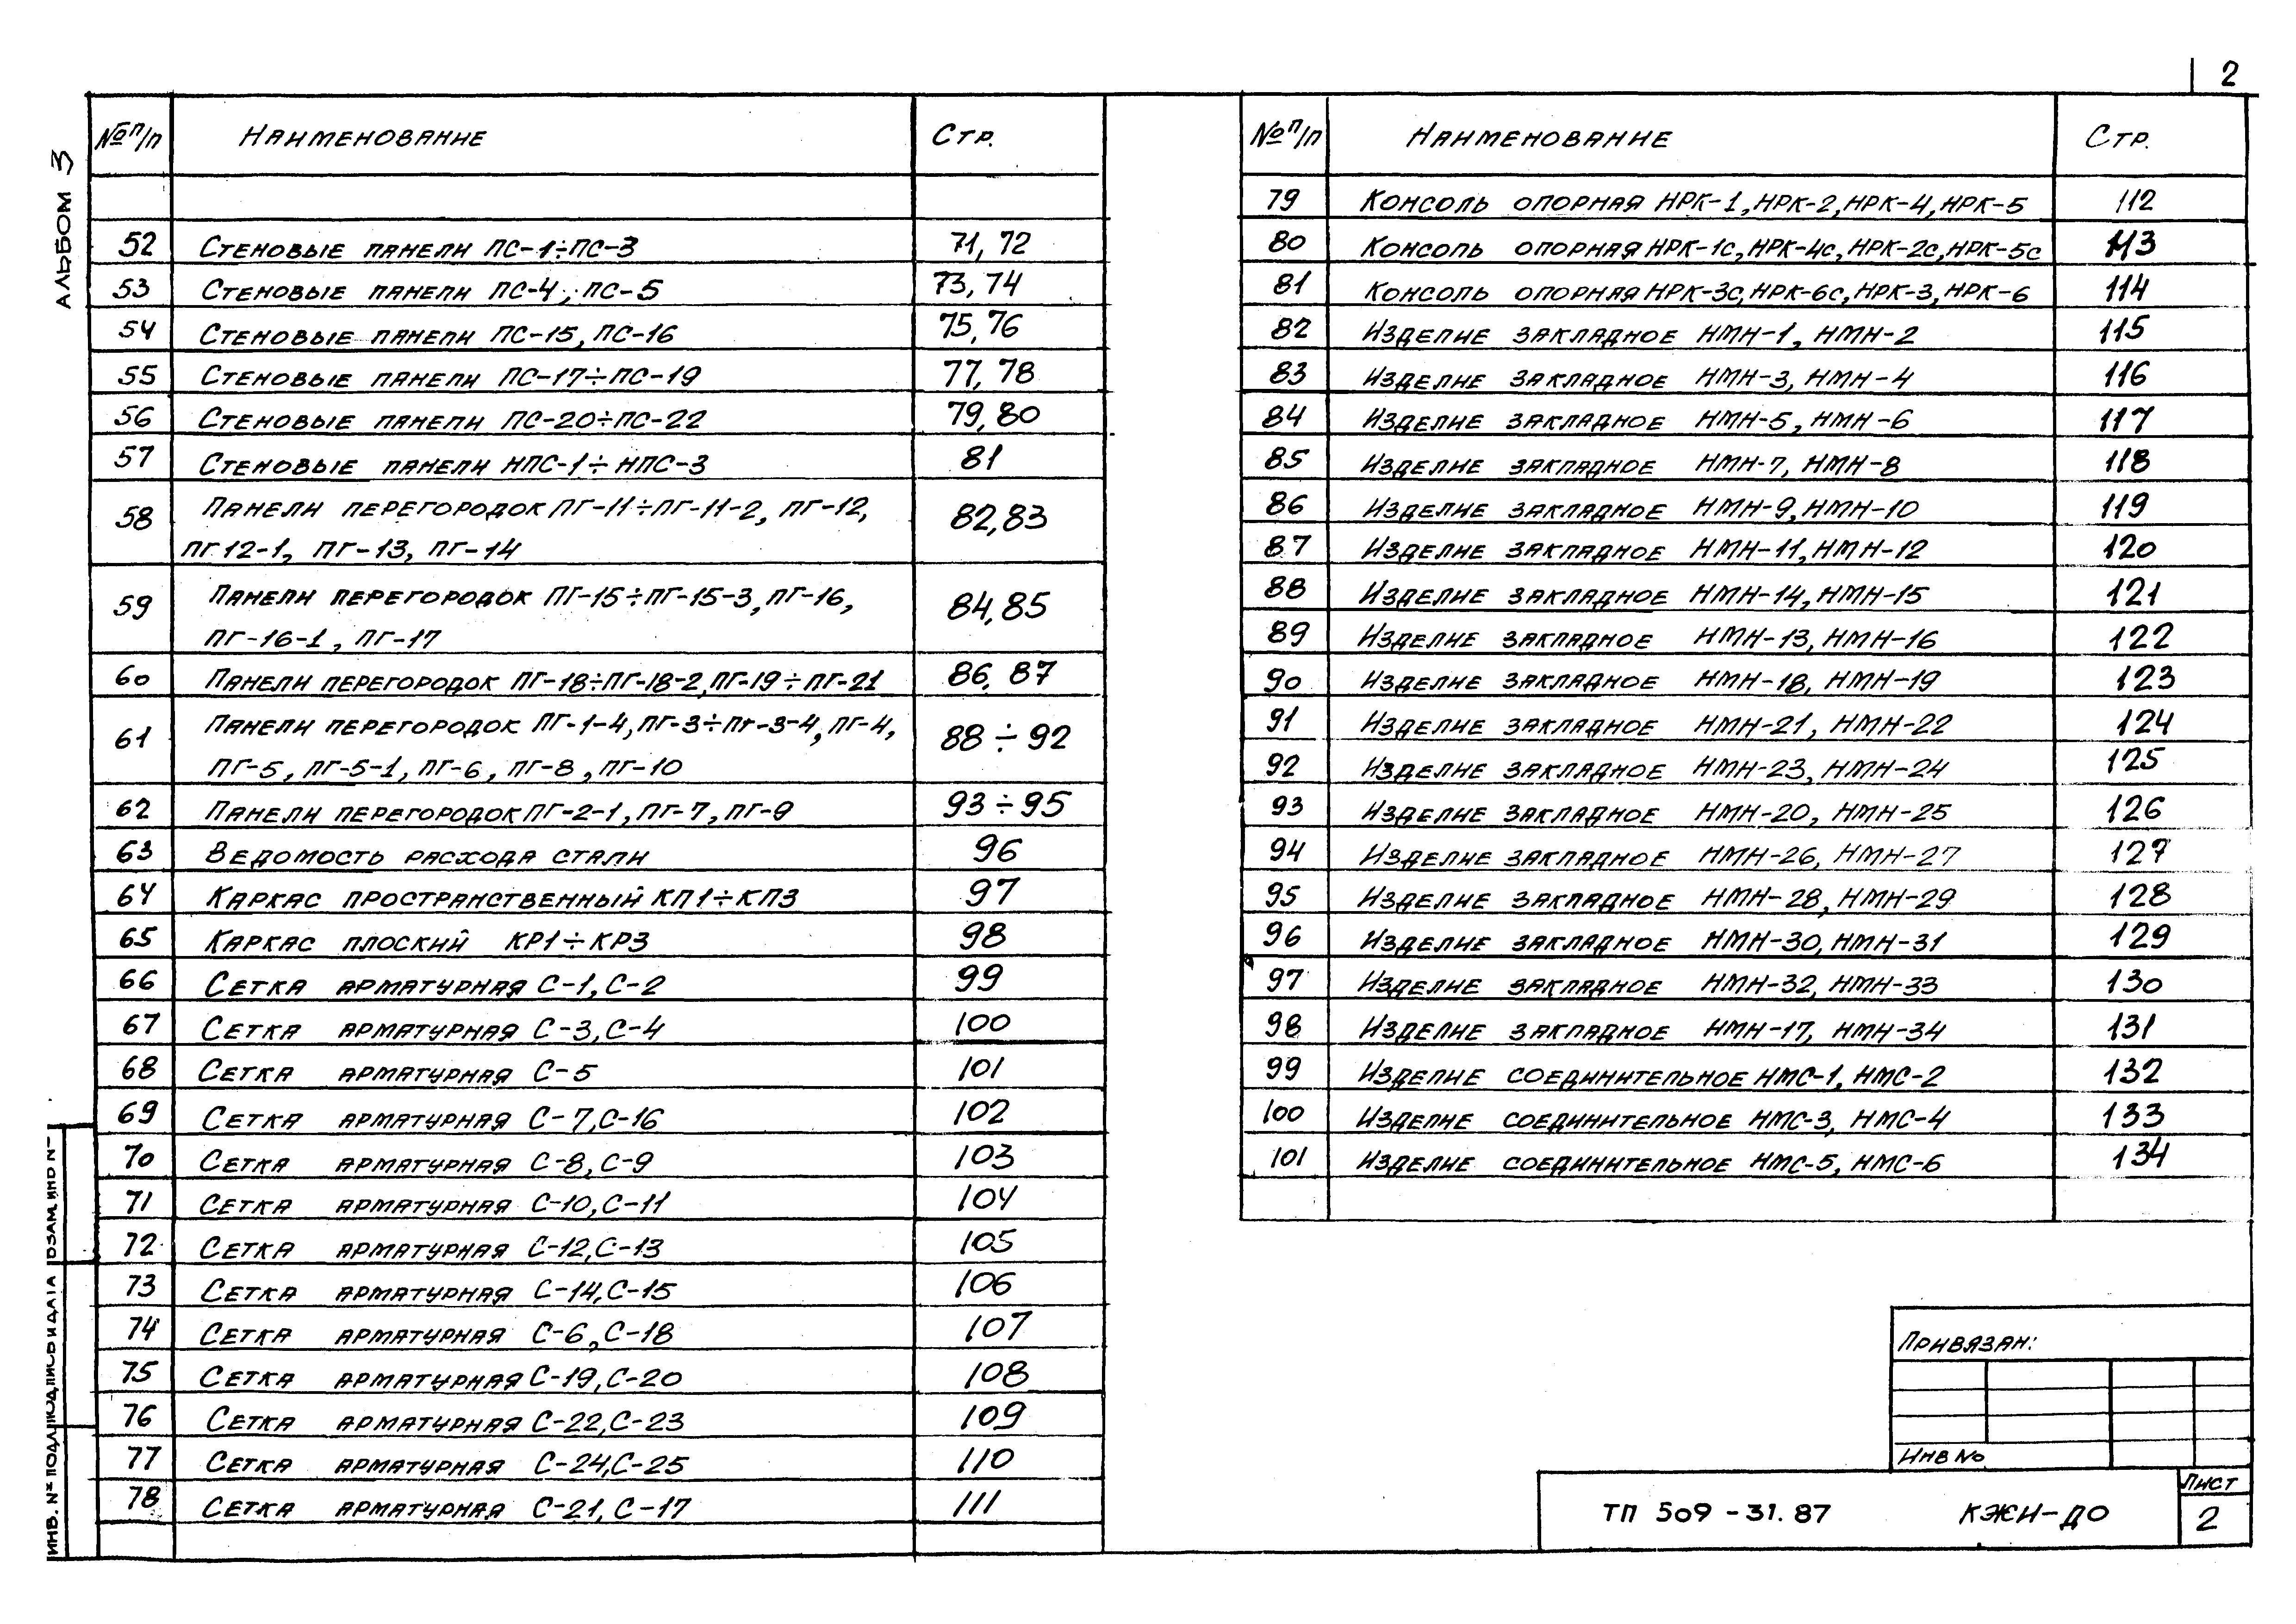 2
АЛЬБОМ 3
№ п/п НАИМЕНОВАНИЕ СТР.
52 СТЕНОВЫЕ ПАНЕЛИ ПС-1÷ПС-3 71, 72
53 СТЕНОВЫЕ ПАНЕЛИ ПС-4, ПС-5 73, 74
54 СТЕНОВЫЕ ПАНЕЛИ ПС-15, ПС-16 75, 76
55 СТЕНОВЫЕ ПАНЕЛИ ПС-17÷ПС-19 77, 78
56 СТЕНОВЫЕ ПАНЕЛИ ПС-20÷ПС-22 79, 80
57 СТЕНОВЫЕ ПАНЕЛИ НПС-1÷НПС-3 81
58 ПАНЕЛИ ПЕРЕГОРОДОК ПГ-11÷ПГ-11-2, ПГ-12, 82,83
ПГ12-1, ПГ-13, ПГ-14
59 ПАНЕЛИ ПЕРЕГОРОДОК ПГ-15÷ПГ-15-3, ПГ-16, 84,85
ПГ-16-1, ПГ-17
60 ПАНЕЛИ ПЕРЕГОРОДОК ПГ-18÷ПГ-18-2, ПГ-19÷ПГ-21 86, 87
61 ПАНЕЛИ ПЕРЕГОРОДОК ПГ-1-4, ПГ-3÷ПГ-3-4, ПГ-4, 88÷92
ПГ-5, ПГ-5-1, ПГ-6, ПГ-8, ПГ-10
62 ПАНЕЛИ ПЕРЕГОРОДОК ПГ-2-1, ПГ-7, ПГ-9 93÷95
63 ВЕДОМОСТЬ РАСХОДА СТАЛИ 96
64 КАРКАС ПРОСТРАНСТВЕННЫЙ КП1÷КП3 97
65 КАРКАС ПЛОСКИЙ КР1÷КР3 98
66 СЕТКА АРМАТУРНАЯ С-1, С-2 99
67 СЕТКА АРМАТУРНАЯ С-3, С-4 100
68 СЕТКА АРМАТУРНАЯ С-5 101
69 СЕТКА АРМАТУРНАЯ С-7, С-16 102
70 СЕТКА АРМАТУРНАЯ С-8, С-9 103
71 СЕТКА АРМАТУРНАЯ С-10, С-11 104
72 СЕТКА АРМАТУРНАЯ С-12, С-13 105
73 СЕТКА АРМАТУРНАЯ С-14, С-15 106
74 СЕТКА АРМАТУРНАЯ С-6, С-18 107
75 СЕТКА АРМАТУРНАЯ С-19, С-20 108
76 СЕТКА АРМАТУРНАЯ С-22, С-23 109
77 СЕТКА АРМАТУРНАЯ С-24, С-25 110
78 СЕТКА АРМАТУРНАЯ С-21, С-17 111
№ п/п НАИМЕНОВАНИЕ СТР.
79 КОНСОЛЬ ОПОРНАЯ НРК-1, НРК-2, НРК-4, НРК-5 112
80 КОНСОЛЬ ОПОРНАЯ НРК-1С, НРК-4С, НРК-2С, НРК-5С 113
81 КОНСОЛЬ ОПОРНАЯ НРК-3С, НРК-6С, НРК-3, НРК-6 114
82 ИЗДЕЛИЕ ЗАКЛАДНОЕ НМН-1, НМН-2 115
83 ИЗДЕЛИЕ ЗАКЛАДНОЕ НМН-3, НМН-4 116
84 ИЗДЕЛИЕ ЗАКЛАДНОЕ НМН-5, НМН-6 117
85 ИЗДЕЛИЕ ЗАКЛАДНОЕ НМН-7, НМН-8 118
86 ИЗДЕЛИЕ ЗАКЛАДНОЕ НМН-9, НМН-10 119
87 ИЗДЕЛИЕ ЗАКЛАДНОЕ НМН-11, НМН-12 120
88 ИЗДЕЛИЕ ЗАКЛАДНОЕ НМН-14, НМН-15 121
89 ИЗДЕЛИЕ ЗАКЛАДНОЕ НМН-13, НМН-16 122
90 ИЗДЕЛИЕ ЗАКЛАДНОЕ НМН-18, НМН-19 123
91 ИЗДЕЛИЕ ЗАКЛАДНОЕ НМН-21, НМН-22 124
92 ИЗДЕЛИЕ ЗАКЛАДНОЕ НМН-23, НМН-24 125
93 ИЗДЕЛИЕ ЗАКЛАДНОЕ НМН-20, НМН-25 126
94 ИЗДЕЛИЕ ЗАКЛАДНОЕ НМН-26, НМН-27 127
95 ИЗДЕЛИЕ ЗАКЛАДНОЕ НМН-28, НМН-29 128
96 ИЗДЕЛИЕ ЗАКЛАДНОЕ НМН-30, НМН-31 129
97 ИЗДЕЛИЕ ЗАКЛАДНОЕ НМН-32, НМН-33 130
98 ИЗДЕЛИЕ ЗАКЛАДНОЕ НМН-17, НМН-34 131
99 ИЗДЕЛИЕ СОЕДИНИТЕЛЬНОЕ НМС-1, НМС-2 132
100 ИЗДЕЛИЕ СОЕДИНИТЕЛЬНОЕ НМС-3, НМС-4 133
101 ИЗДЕЛИЕ СОЕДИНИТЕЛЬНОЕ НМС-5, НМС-6 134
ПРИВЯЗАН:
ИНВ №
ТП 509-31.87 КЖИ-ДО
ЛИСТ
2
ИНВ. № ПОДЛ. ПОДПИСЬ И ДАТА ВЗАМ. ИНВ №